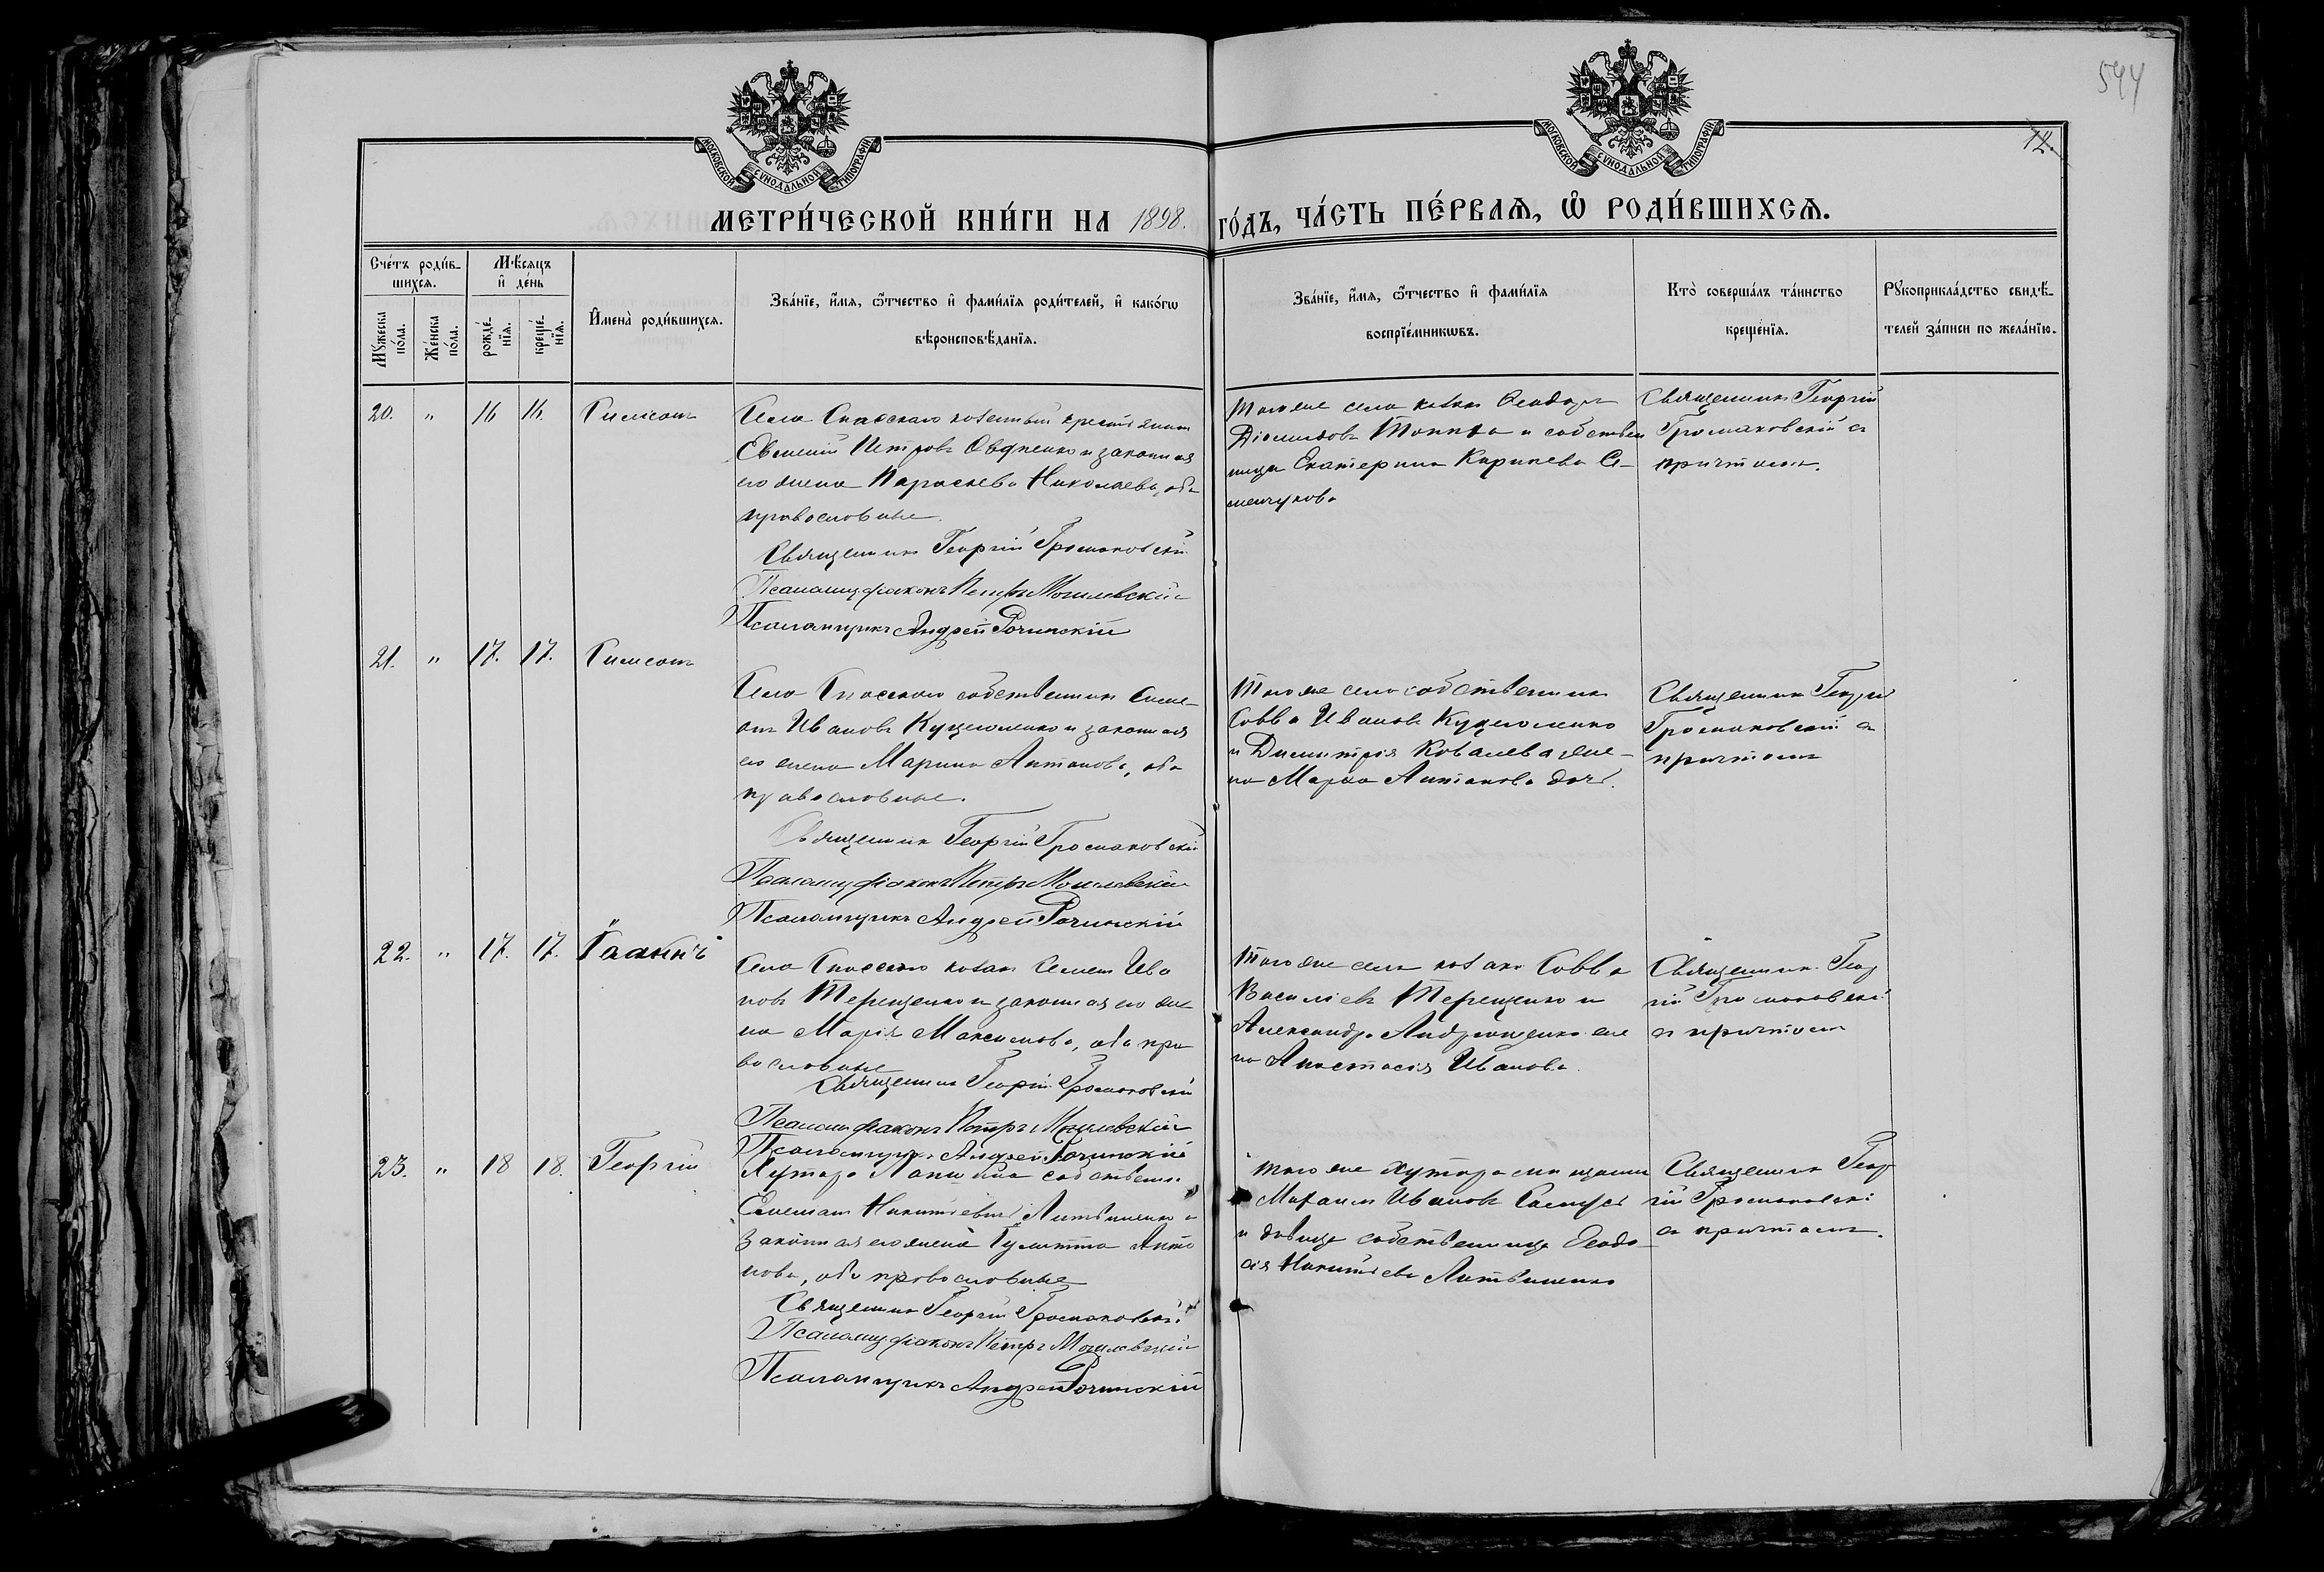 544
12.
МОСКОВСКОЙ СѴНОДАЛЬНОЙ ТИПОГРАФІИ
МОСКОВСКОЙ СѴНОДАЛЬНОЙ ТИПОГРАФІИ
МЕТРИ́ЧЕСКОЙ КНИ́ГИ НА 1898. ГО́ДЪ, ЧА́СТЬ ПЕ́РВАѦ, Ѡ҆ РОДИ́ВШИХСѦ.
Сче́тъ роди́в-
шихсѧ.
Мꙋ́жеска по́ла.
Же́нска по́ла.
Мѣ́сѧцъ
и҆ де́нь
рожде́-
нїѧ.
креще́-
нїѧ.
И҆мена̀ роди́вшихсѧ.
Зва́нїе, и҆́мѧ, ѻ҆́тчество и҆ фами́лїѧ роди́телей, и҆ како́гѡ
вѣроисповѣ́данїѧ.
Зва́нїе, и҆́мѧ, ѻ҆́тчество и҆ фами́лїѧ
воспрїе́мникѡвъ.
Кто̀ соверша́лъ та́инство
креще́нїѧ.
Рꙋкоприкла́дство свидѣ́-
телей за́писи по жела́нїю.
20. " 16 16. Симеонъ
Села Спасскаго казенный крестьянинъ
Евмений Петровъ Овдiенко и законная
его жена Параскева Николаева, оба
православные.
Священникъ Георгій Громаковскій
Псаломщ діаконъ Петръ Могилевскій
Псаломщикъ Андрей Рочинскій
Того же села козакъ Ѳеодоръ
Діомидовъ Топпа и собствен
ница Екатерина Карпева Се-
менчукова
Священникъ Георгій
Громаковскій съ
причтомъ.
21. " 17. 17. Симеонъ
Села Спасскаго собственникъ Симе-
онъ Ивановъ Куцеволенко и законная
его жена Марина Антонова, оба
православные.
Священникъ Георгій Громаковскій
Псаломщ діаконъ Петръ Могилевскій
Псаломщикъ Андрей Рочинскій
Того же села собственникъ
Савва Ивановъ Куцеволенко
и Димитрія Ковалева же-
на Марѳа Антонова дочь.
Священникъ Георгій
Громаковскій съ
причтомъ
22. " 17. 17. Іоаннъ
Села Спасскаго козакъ Семенъ Ива
новъ Терещенко и законная его же
на Марія Максимова, оба пра
вославные
Священникъ Георгій Громаковскій
Псаломщ діаконъ Петръ Могилевскій
Псаломщикъ Андрей Рочинскій
Того же села козакъ Савва
Василіевъ Терещенко и
Александра Андрющенко же
на Анастасія Иванова.
Священникъ Геор
гій Громаковскій
съ причтомъ
23. " 18 18. Георгій
Хутора собственн.
Симеонъ Никитіевичъ Литвиненко и
законная его жена Іулитта Анто
нова, оба православные
Священникъ Георгій Громаковскій
Псаломщ діаконъ Петръ Могилевскій
Псаломщикъ Андрей Рочинскій
того же хутора мещанинъ
Михаилъ Ивановъ
и девица собственница Ѳеодо
сія Никитіева Литвиненко
Священникъ Геор
гій Громаковскій
съ причтомъ.